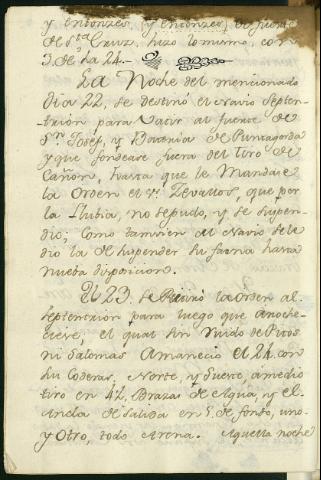 y entonzes, (y entonzes) el fuerte
de S.ta Cruz, hizo lo mismo, con
3. de ha 24.
La Noche del mencionado
dia 22, se destinó el Navio Septen-
trion para vatir al fuerte de
S.n Josef, y Bateria de Puntagorda
y que fondease fuera del tiro de
Cañon, hasta que le Mandase
la Orden el S.r Zevallos, que por
la Llubia, no se pudo, y se suspen-
dio; como tamvien al Navio se le
dio la de suspender su faena hasta
nueba disposicion.
El 23. se Reiteró la Orden al
septentrion para luego que anoche-
ciese, el qual sin Ruido de Pitos
ni Salomas Amanecio el 24. con
su Coderas, Norte, y Sueste, a medio
tiro en 4 1/2, Brazas de Agua, y el
ancla de salida en 5. de fondo, uno
y Otro, todo Arena. Aquella noche